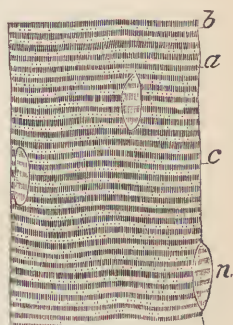 b
a
c
n.